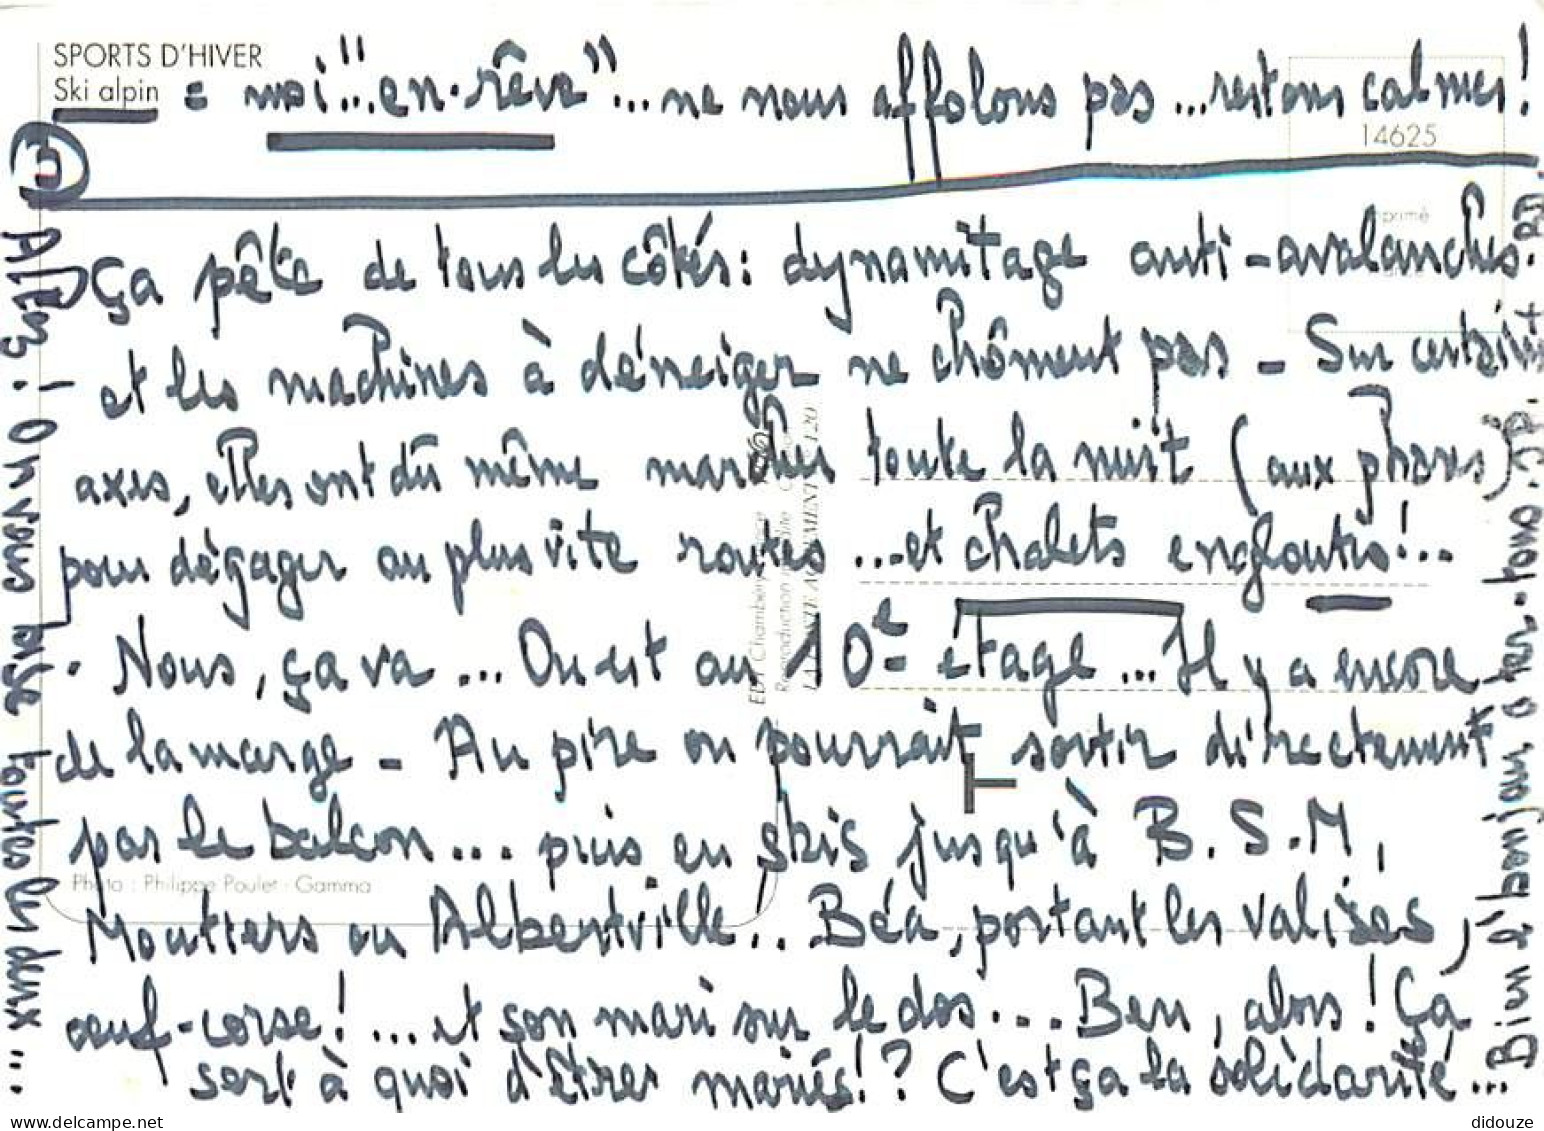 SPORTS D'HIVER
Ski alpin = moi "..en-rêve" ... ne nous affolons pas ... restons calmes!
14625
③
Imprimé
Ça pête de tous les côtés: dynamitage anti-avalanches.
- et les machines à déneiger ne chôment pas - Sur certains
axes, elles ont dû même marcher toute la nuit (aux phares)
pour dégager au plus vite routes ... et chalets engloutis!..
. Nous, ça va ... On est au 10e étage ... Il y a encore
de la marge - Au pire on pourrait sortir directement
par le balcon ... puis en skis jusqu'à B.S.M,
Photo : Philippe Poulet - Gamma
Moutiers ou Albertville.. Béa, portant les valises,
oeuf-corse! ... et son mari sur le dos ... Ben, alors! Ça
sert à quoi d'êtres mariés!? C'est ça la solidarité ...
Allez! On vous bise toutes les deux ...
Bien l'bonjour à ter-tous. J.P. + RD.
EDY Chambéry
Reproduction
didouze
www.delcampe.net